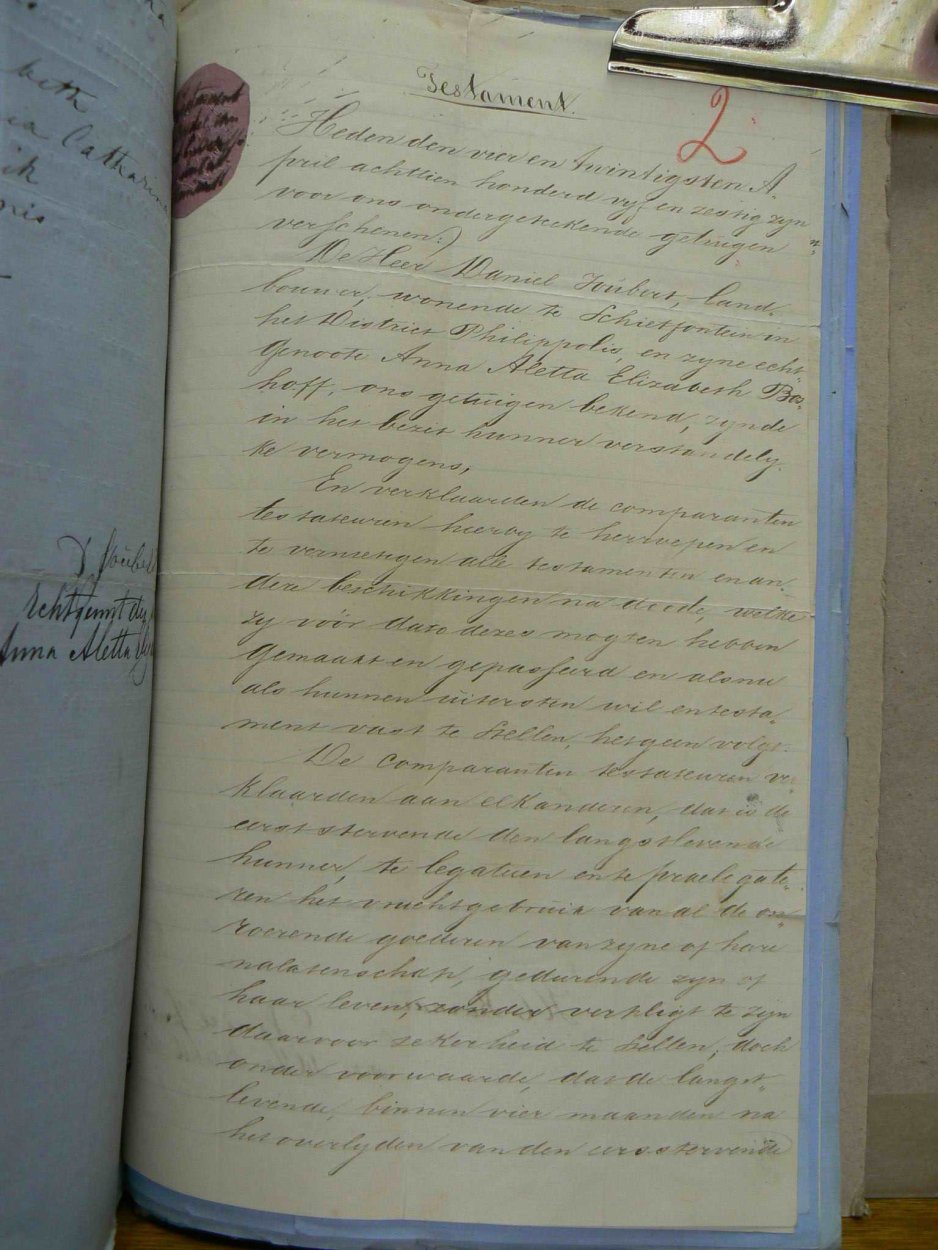 beth
Catharina
ik
Testament.
2
Heden den vier en twintigsten A„
pril achttien honderd vyf en zestig zyn
voor ons ondergeteekende getuigen
verschenen:
De Heer Daniel Joubert, land„
bouwer, wonende te Schietfontein in
het District Philippolis, en zyne echt„
genoote Anna Aletta Elizabeth Bos„
hoff, ons getuigen bekend, zynde
in het bezit hunner verstandely„
ke vermogens,
En verklaarden de comparanten
testateuren hierby te herroepen en
te vernietigen alle testamenten en an„
dere beschikkingen na doode, welke
zy vóór dato dezes mogten hebben
gemaakt en gepasseerd en alsnu
als hunnen uitersten wil en testa„
ment vast te stellen, hetgeen volgt.
De comparanten testateuren ver„
klaarden aan elkanderen, dat is de
eerststervende den langstlevende
hunner, te legateren en te praelegate„
ren het vruchtgebruik van al de on„
roerende goederen van zyne of hare
nalatenschap, gedurende zyn of
haar leven, zonder verpligt te zyn
daarvoor zekerheid te stellen, doch
onder voorwaarde, dat de langst„
levende, binnen vier maanden na
het overlyden van den eerststervende
Joubert
Anna Aletta